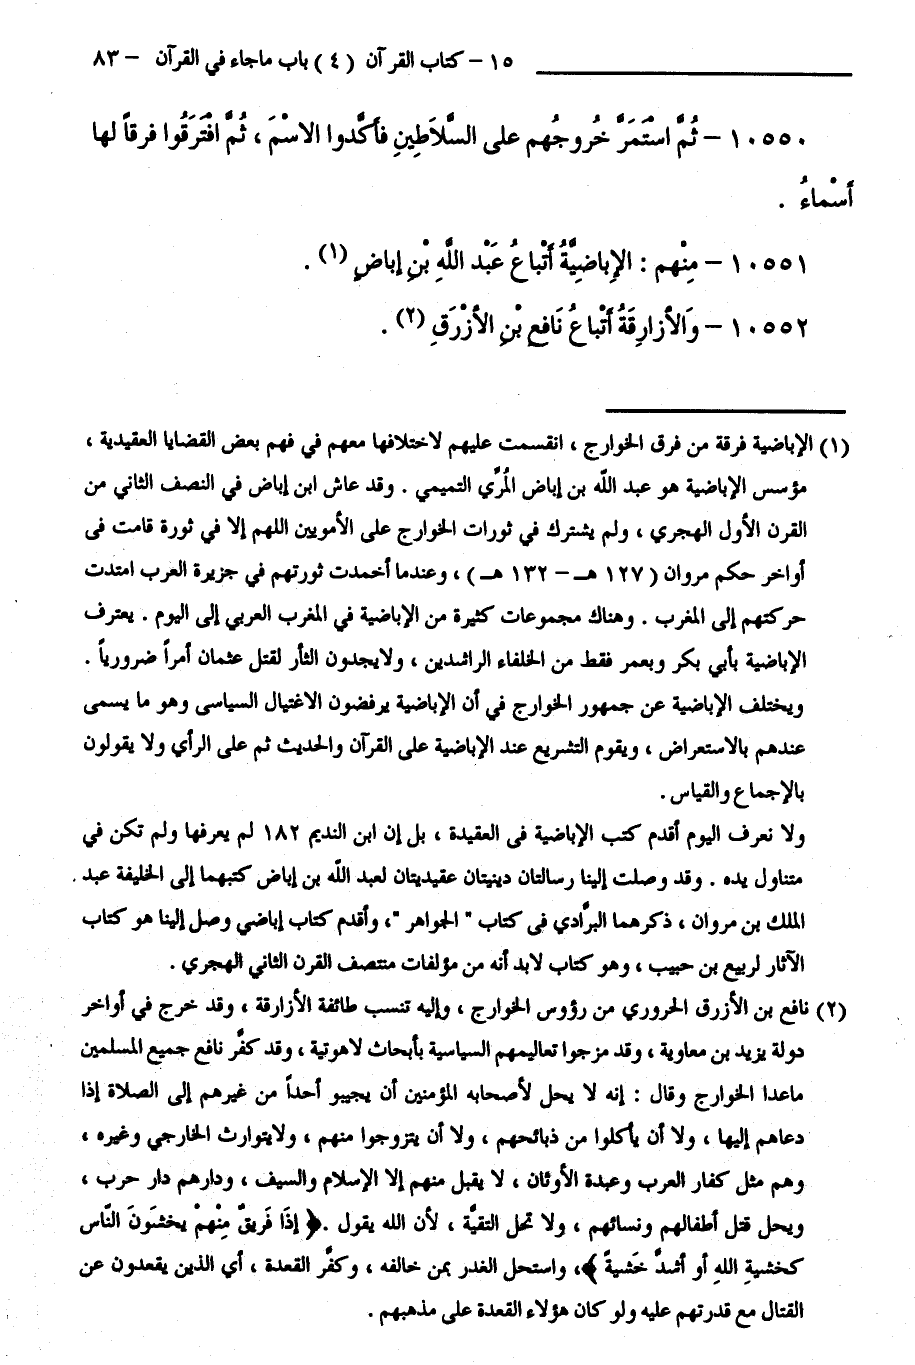 ١٥ – كتاب القرآن (٤) باب ماجاء في القرآن – ٨٣
١٠٥٥٠ – ثُمَّ اسْتَمَرَّ خُرُوجُهم على السَّلاَطِينِ فأكَّدوا الاسْمَ ، ثُمَّ افْتَرَقُوا فرقاً لها
أسْماءُ .
١٠٥٥١ – مِنْهم : الإِباضِيَّةُ أتْباعُ عَبْد اللَّهِ بْنِ إباضٍ (١) .
١٠٥٥٢ – وَالأزارِقَةُ أتْباعُ نَافِعِ بْنِ الأزْرَقِ (٢) .
(١) الإباضية فرقة من فرق الخوارج ، انقسمت عليهم لاختلافها معهم في فهم بعض القضايا العقيدية ،
مؤسس الإباضية هو عبد اللّه بن إباض المُرِّي التميمي . وقد عاش ابن إباض في النصف الثاني من
القرن الأول الهجري ، ولم يشترك في ثورات الخوارج على الأمويين اللهم إلا في ثورة قامت فى
أواخر حكم مروان (١٢٧ هـ – ١٣٢ هـ) ، وعندما أخمدت ثورتهم في جزيرة العرب امتدت
حركتهم إلى المغرب . وهناك مجموعات كثيرة من الإباضية في المغرب العربي إلى اليوم . يعترف
الإباضية بأبي بكر وبعمر فقط من الخلفاء الراشدين ، ولايجدون الثأر لقتل عثمان أمراً ضرورياً .
ويختلف الإباضية عن جمهور الخوارج في أن الإباضية يرفضون الاغتيال السياسى وهو ما يسمى
عندهم بالاستعراض ، ويقوم التشريع عند الإباضية على القرآن والحديث ثم على الرأي ولا يقولون
بالإجماع والقياس .
ولا نعرف اليوم أقدم كتب الإباضية فى العقيدة ، بل إن ابن النديم ١٨٢ لم يعرفها ولم تكن في
متناول يده . وقد وصلت إلينا رسالتان دينيتان عقيديتان لعبد اللّه بن إباض كتبهما إلى الخليفة عبد
الملك بن مروان ، ذكرهما البرَّادي فى كتاب " الجواهر "، وأقدم كتاب إباضي وصل إلينا هو كتاب
الآثار لربيع بن حبيب ، وهو كتاب لابد أنه من مؤلفات منتصف القرن الثاني الهجري .
(٢) نافع بن الأزرق الحروري من رؤوس الخوارج ، وإليه تنسب طائفة الأزارقة ، وقد خرج في أواخر
دولة يزيد بن معاوية ، وقد مزجوا تعاليمهم السياسية بأبحاث لاهوتية ، وقد كفَّر نافع جميع المسلمين
ماعدا الخوارج وقال : إنه لا يحل لأصحابه المؤمنين أن يجيبو أحداً من غيرهم إلى الصلاة إذا
دعاهم إليها ، ولا أن يأكلوا من ذبائحهم ، ولا أن يتزوجوا منهم ، ولايتوارث الخارجي وغيره ،
وهم مثل كفار العرب وعبدة الأوثان ، لا يقبل منهم إلا الإسلام والسيف ، ودارهم دار حرب ،
ويحل قتل أطفالهم ونسائهم ، ولا تحل التقيَّة ، لأن الله يقول .﴿ إذَا فَرِيقٌ مِنْهمْ يخشَونَ النَّاس
كخشيةِ اللهِ أو أشدَّ خَشيةً ﴾، واستحل الغدر بمن خالفه ، وكفَّر القعدة ، أي الذين يقعدون عن
القتال مع قدرتهم عليه ولو كان هؤلاء القعدة على مذهبهم .